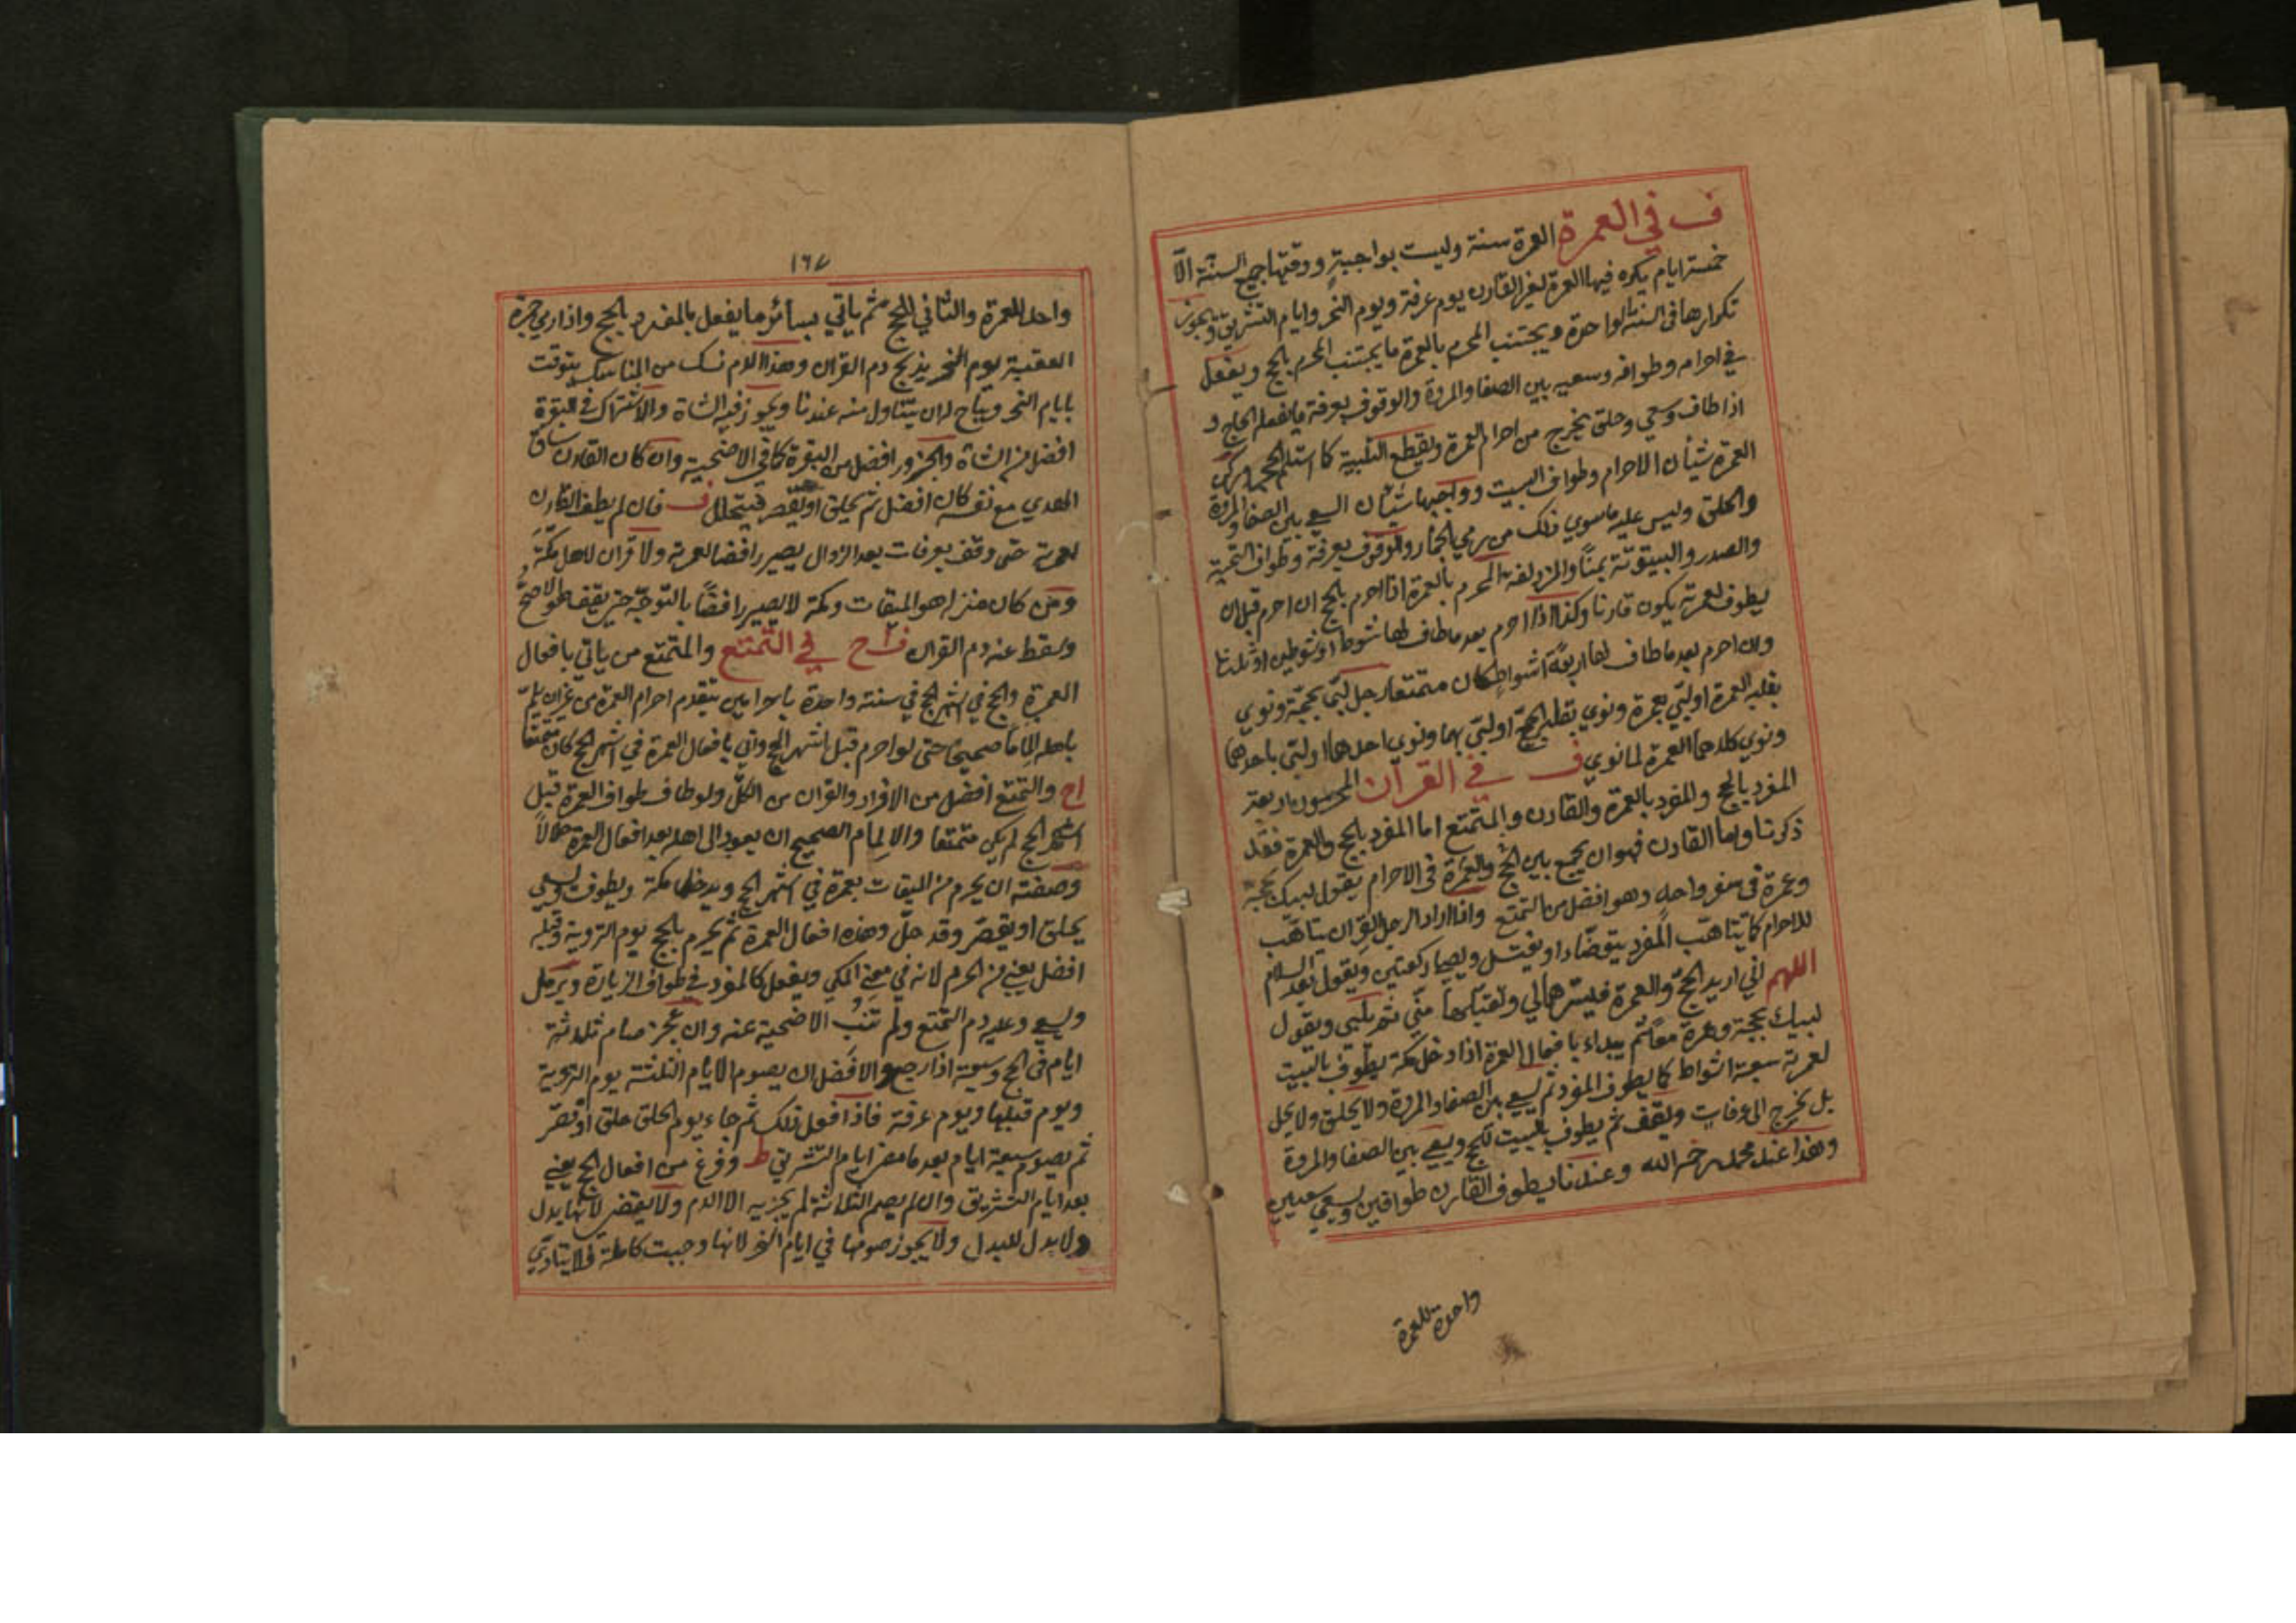 ف في العمرة العمرة سنة وليست بواجبة ووقتها جميع السنة الّا
خمسة ايام يكره فيها العمرة لغير القارن يوم عرفة ويوم النحر وايام التشريق ويجوز
تكرارها في السنة الواحدة ويجتنب المحرم بالعمرة ما يجتنب المحرم بالحج ويفعل
في احرامه وطوافه وسعيه بين الصفا والمروة والوقوف بعرفة ما يفعل الحاج و
اذا طاف وسعي وحلق يخرج من احرام العمرة ويقطع التلبية كما استلم الحجر وركن
العمرة شيأن الاحرام وطواف البيت وواجبها شيأن السعي بين الصفا والمروة
والحلق وليس عليه ما سوي ذلك من رمي الجمار والوقوف بعرفة وطواف التحية
والصدر والبيتوتة بمنًا والمزدلفة المحرم بالعمرة اذا احرم بالحج ان احرم قبل ان
يطوف لعمرته يكون قارنا وكذا اذا احرم بعد ما طاف لها شوطا او شوطين او ثلثا
وان احرم بعد ما طاف لها اربعة اشواط كان متمتعا رجل لبّي بحجّة ونوي
بقلبه العمرة او لبّي بعمرة ونوي بقلبه الحجّ او لبّي بهما ونوي احدهما او لبّي باحدهما
ونوي كلاهما العمرة لما نوي ف في القران المحرمون اربعة
المفرد بالحج والمفرد بالعمرة والقارن والمتمتع اما المفرد بالحج والعمرة فقد
ذكرنا واما القارن فهو ان يجمع بين الحج والعمرة في الاحرام يقول لبيك بحجة
وعمرة في سفر واحد وهو افضل من التمتع واذا اراد الرجل القران يتاهّب
للاحرام كما يتاهّب المفرد يتوضّاء او يغتسل ويصلي ركعتين ويقول بعد السلام
اللهم اني اريد الحجّ والعمرة فيسّرهما لي وتقبّلهما منّي ثم يلبّي ويقول
لبيك بحجة وعمرة معًا ثم يبداء بافعال العمرة اذا دخل مكة يطوف بالبيت
لعمرته سبعة اشواط كما يطوف المفرد ثم يسعي بين الصفا والمروة ولا يحلق ولا يحل
بل يخرج الى عرفات ويقف ثم يطوف بالبيت للحج ويسعي بين الصفا والمروة
وهذا عند محمد رحمه الله وعندنا يطوف القارن طوافين ويسعي سعيين
واحدة للعمرة
١٦٧
واحد للعمرة والثاني للحج ثم ياتي بسائر ما يفعل بالمفرد بالحج واذا رمي جمرة
العقبة يوم النحر يذبح دم القران وهذا الدم نسك من المناسك يتوقت
بايام النحر ويباح له ان يتناول منه عندنا ويجوز فيه الشاة والاشتراك في البقرة
افضل من الشاة والجزور افضل من البقرة كما في الاضحية وان كان القارن ساق
الهدي مع نفسه كان افضل ثم يحلق او يقصر فيتحلل ف فان لم يطف القارن
لعمرته حتى وقف بعرفات بعد الزوال يصير رافضا لعمرته ولا قران لاهل مكة
ومن كان منزله هو الميقات ومكة لا يصير رافضًا بالتوجّه حتى يقف هو الاصحّ
وسقط عنه دم القران ف اح في التمتع والمتمتع من ياتي بافعال
العمرة والحج في اشهر الحج في سنة واحدة باحرامين بتقدم احرام العمرة من غير ان يلمّ
باهله الماما صحيحًا حتى لو احرم قبل اشهر الحج واتي بافعال العمرة في اشهر الحج كان متمتعًا
اح والتمتع افضل من الافراد والقران من الكلّ ولو طاف طواف العمرة قبل
اشهر الحج لم يكن متمتعا والالمام الصحيح ان يعود الى اهله بعد افعال العمرة حلالاً
وصفته ان يحرم من الميقات بعمرة في اشهر الحج ويدخل مكة ويطوف ويسعي
يحلق او يقصّر وقد حلّ وهذه افعال العمرة ثم يحرم بالحج يوم التروية وقبله
افضل يعني من الحرم لانه في معني المكي ويفعل كالمفرد في طواف الزيارة ويرمل
ويسعي وعليه دم التمتع ولم تنب الاضحية عنه وان عجز صام ثلاثة
ايام في الحج وسبعة اذا رجع والافضل ان يصوم الايام الثلثة يوم التروية
ويوم قبلها ويوم عرفة فاذا فعل ذلك ثم جاء يوم الحلق حلق او قصّر
ثم يصوم سبعة ايام بعد ما مضي ايام التشريق ط وفرغ من افعال الحج يعني
بعد ايام التشريق وان لم يصم الثلاثة لم يجزيه الا الدم ولا يقضي لانها بدل
ولا بدل للبدل ولا يجوز صومها في ايام النحر لانها وجبت كاملة فلا يتادّي